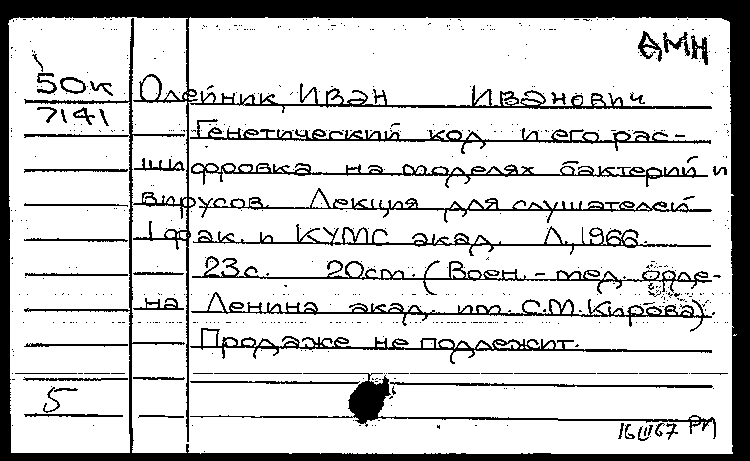 АМН
50к
7141
Олейник, Иван Иванович
Генетический код и его рас-
шифровка на моделях бактерий и
вирусов. Лекция для слушателей
I фак. и КУМС акад. Л., 1966.
23с. 20cm. (Воен.-мед. орде-
на Ленина акад. им. С.М.Кирова).
Продаже не подлежит.
5
16 III 67 РП